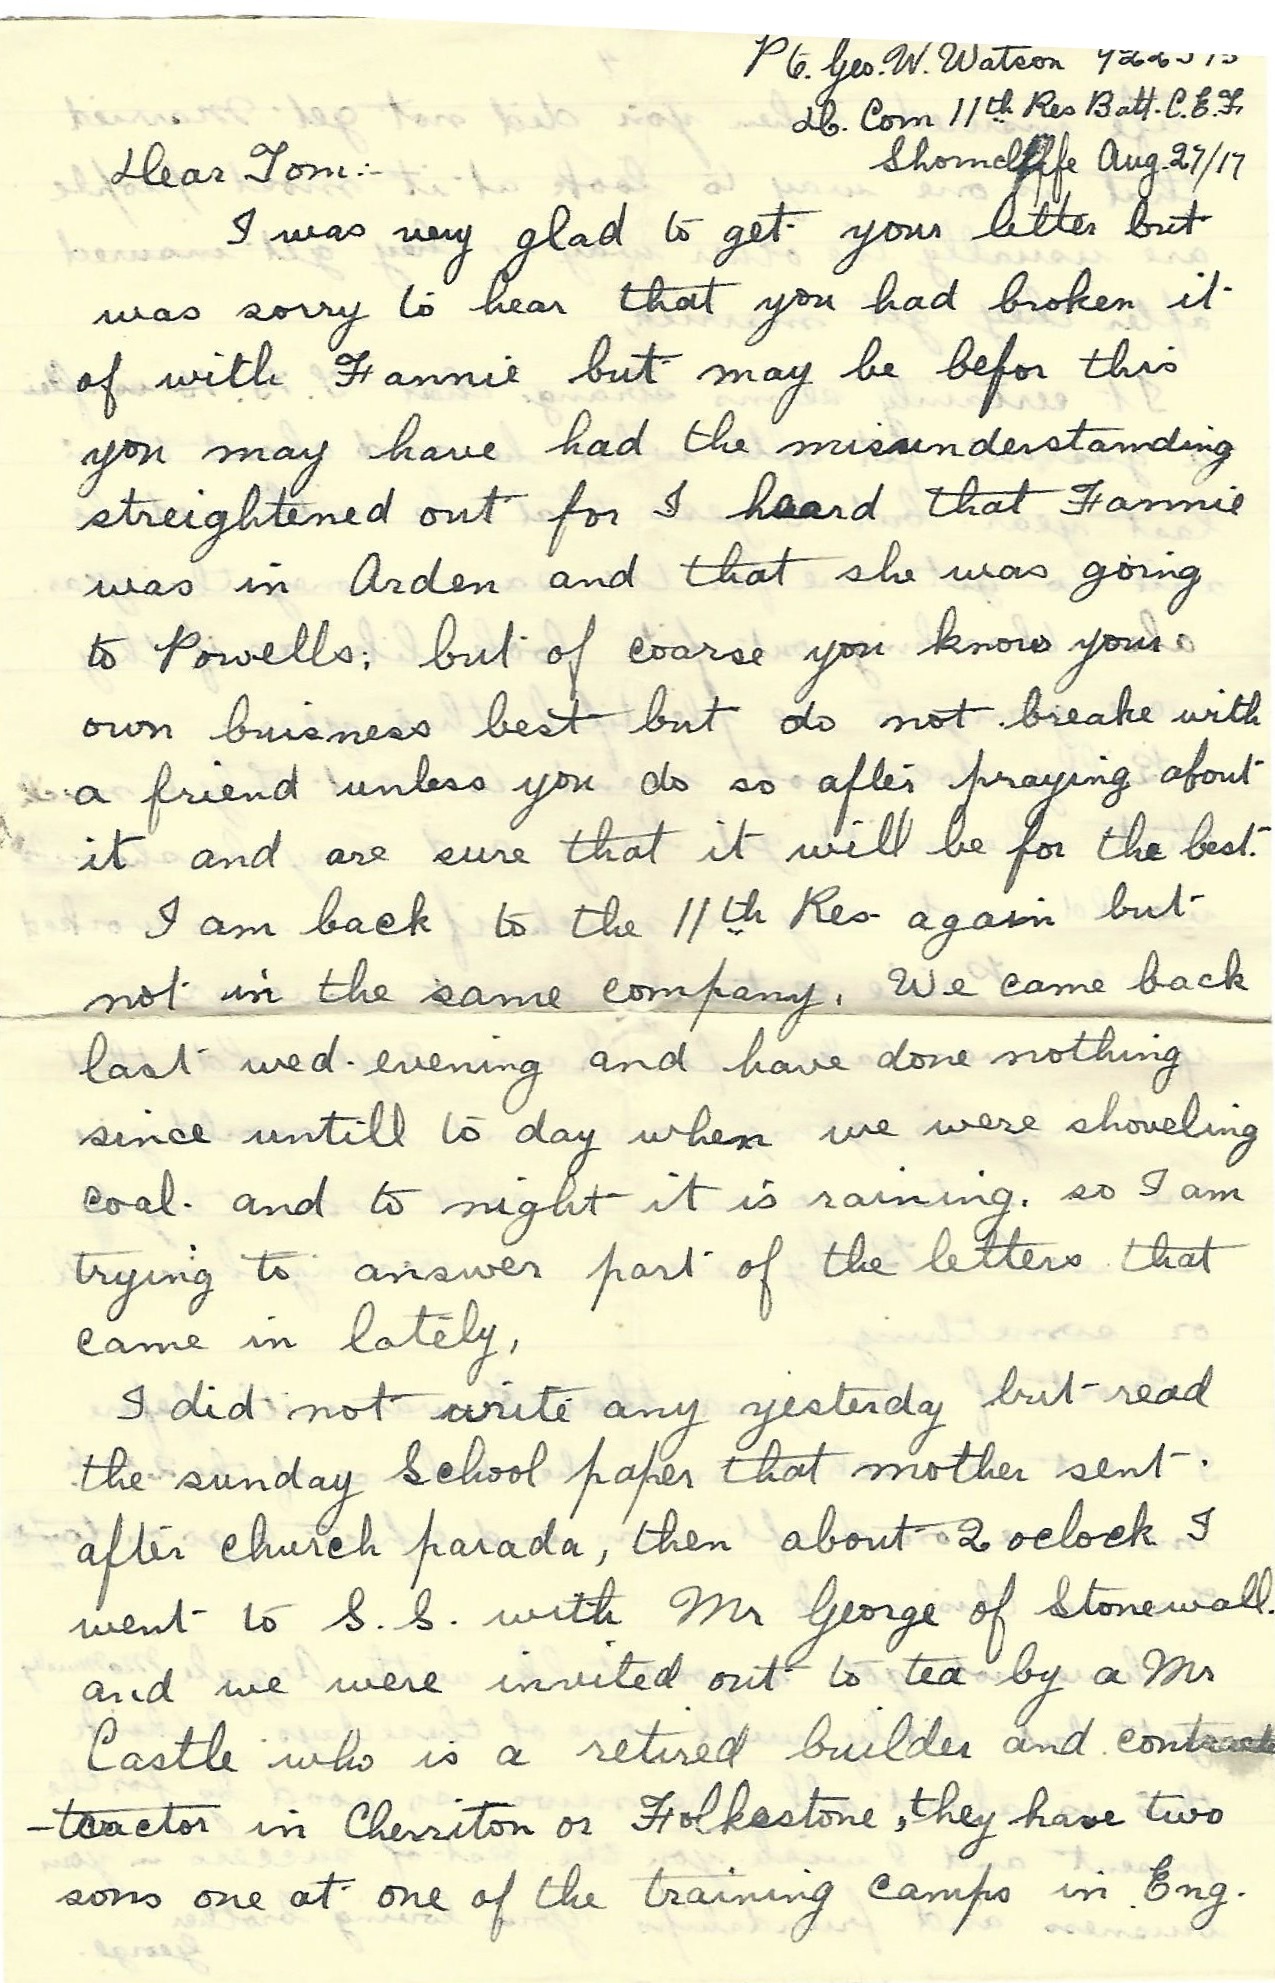 Pt. Geo. W. Watson
Hb. Com 11th Res Batt. C.E.F.
Shorncliffe Aug. 27/17
Dear Tom:-
I was very glad to get your letter but
was sorry to hear that you had broken it
of with Fannie but may be befor this
you may have had the misunderstanding
streightened out for I heard that Fannie
was in Arden and that she was going
to Powells; but of coarse you know your
own buisness best but do not breake with
a friend unless you do so after praying about
it and are sure that it will be for the best.
I am back to the 11th Res again but
not in the same company. We came back
last wed. evening and have done nothing
since untill to day when we were shoveling
coal. and to night it is raining. so I am
trying to answer part of the letters that
came in lately,
I did not write any yesterdy but read
the sunday School paper that mother sent.
after church parada, then about 2 oclock I
went to S.S. with Mr George of Stonewall.
and we were invited out to tea by a Mr
Castle who is a retired builder and
-tractor in Cherriton or Folkestone, they have two
sons one at one of the training camps in Eng.